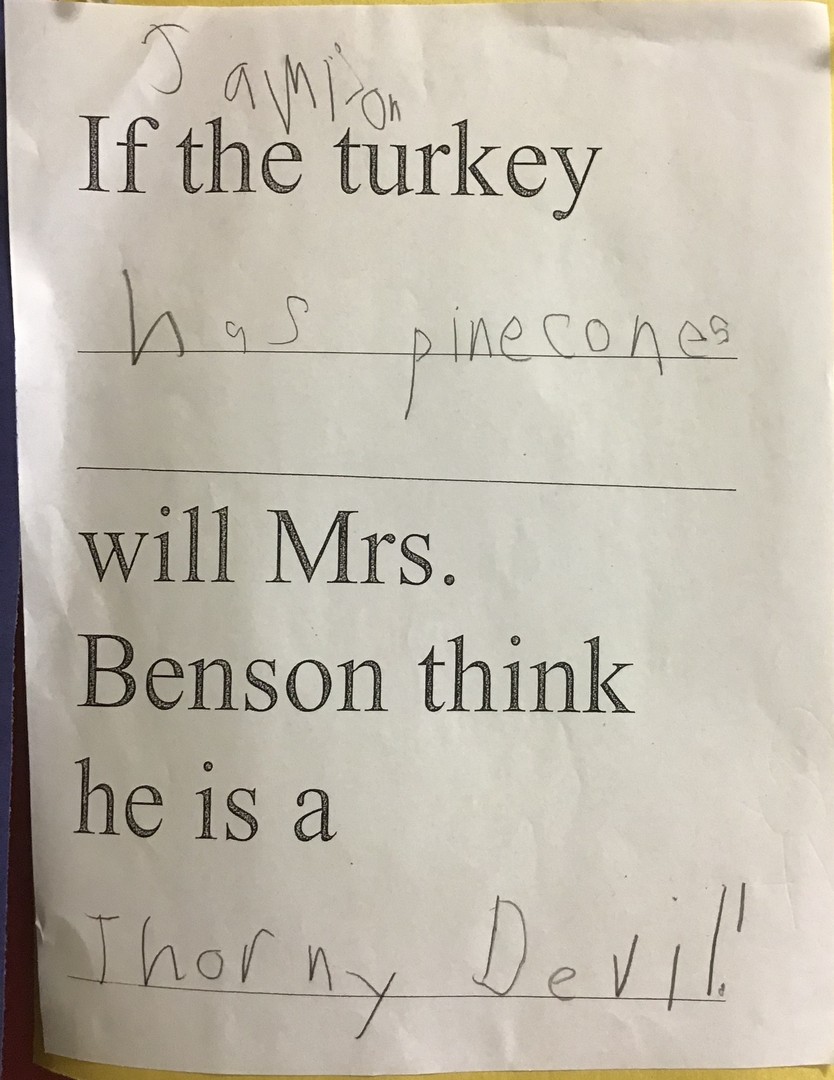 Jamison
If the turkey
has pinecones
will Mrs.
Benson think
he is a
Thorny Devil!